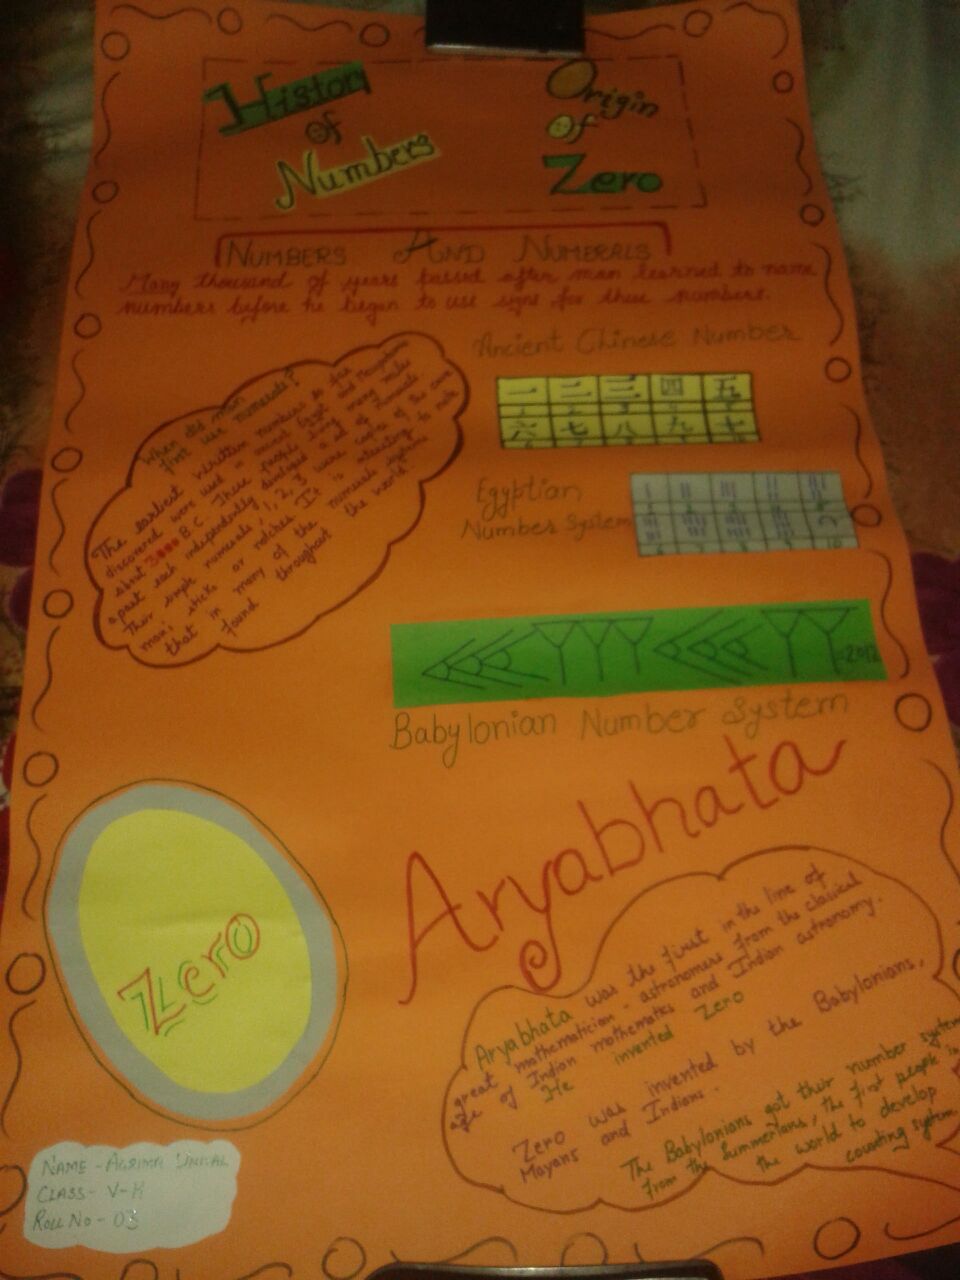 History
of
Numbers
Origin
Of
Zero
NUMBERS AND NUMERALS
Many thousand of years passed after man learned to name
numbers before he began to use signs for these numbers.
When did man
first use numerals?
The earliest written numbers so far
discovered were used in ancient Egypt and
about 3000 B.C. These people living many miles
apart each independently developed a set of numerals
Their simple numerals, 1, 2, 3 were copies of the
man's sticks or notches It is interesting to note
that in many of the numerals system
found throughout the world.
Ancient Chinese Number
一 二 三 四 五
1 2 3 4 5
六 七 八 九 十
6 7 8 9 10
Egyptian
Number System
Babylonian Number System
=2012
Aryabhata
Zero
Aryabhata was the first in the line of
great mathematician - astronomers from the classical
age of Indian mathematics and Indian astronomy.
He invented Zero
Zero was invented by the Babylonians,
Mayans and Indians.
The Babylonians got their number system
from the Summerians, the first people in
the world to develop
counting system
NAME - AGRIMA UNIYAL
CLASS - V-H
ROLL NO - 03